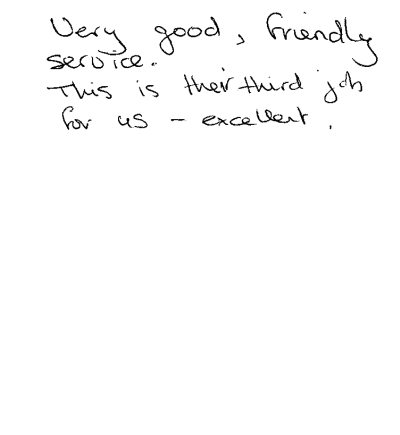 Very good, friendly
service.
This is their third job
for us - excellent.